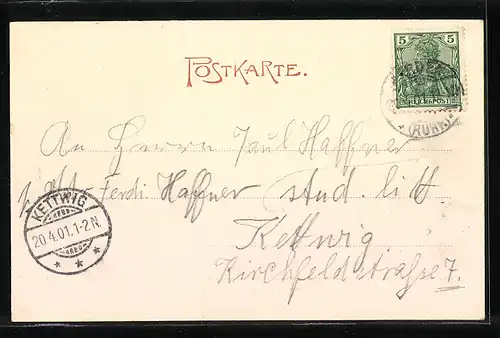 POSTKARTE.
5 5
REICHSPOST
(RUHR)
An Herrn Paul Haffner
Ferdi Haffner stud. litt
Kettwig
Kirchfeldstraße 7.
KETTWIG
20.4.01.1-2N.